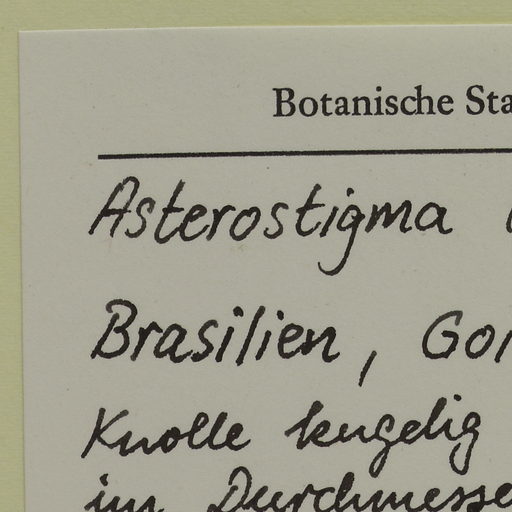 Botanische Sta
Asterostigma
Brasilien, Goi
Knolle kugelig
im Durchmesse